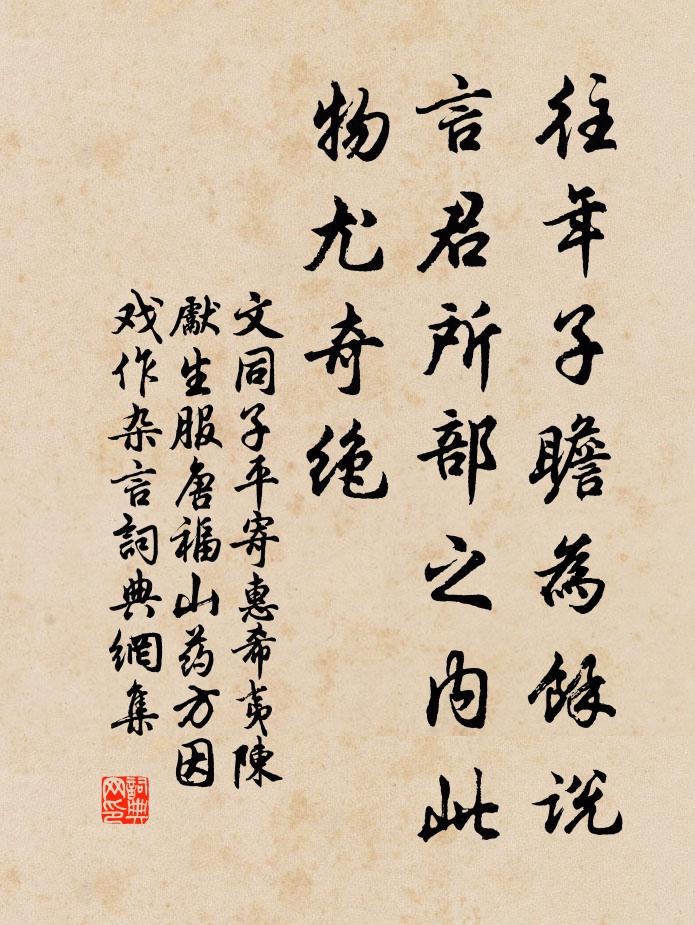 往年子瞻為餘説
言君所部之内此
物尤奇绝
文同子平寄惠希夷陳
獻生服唐福山药方因
戏作杂言詞典網集
詞典
网印